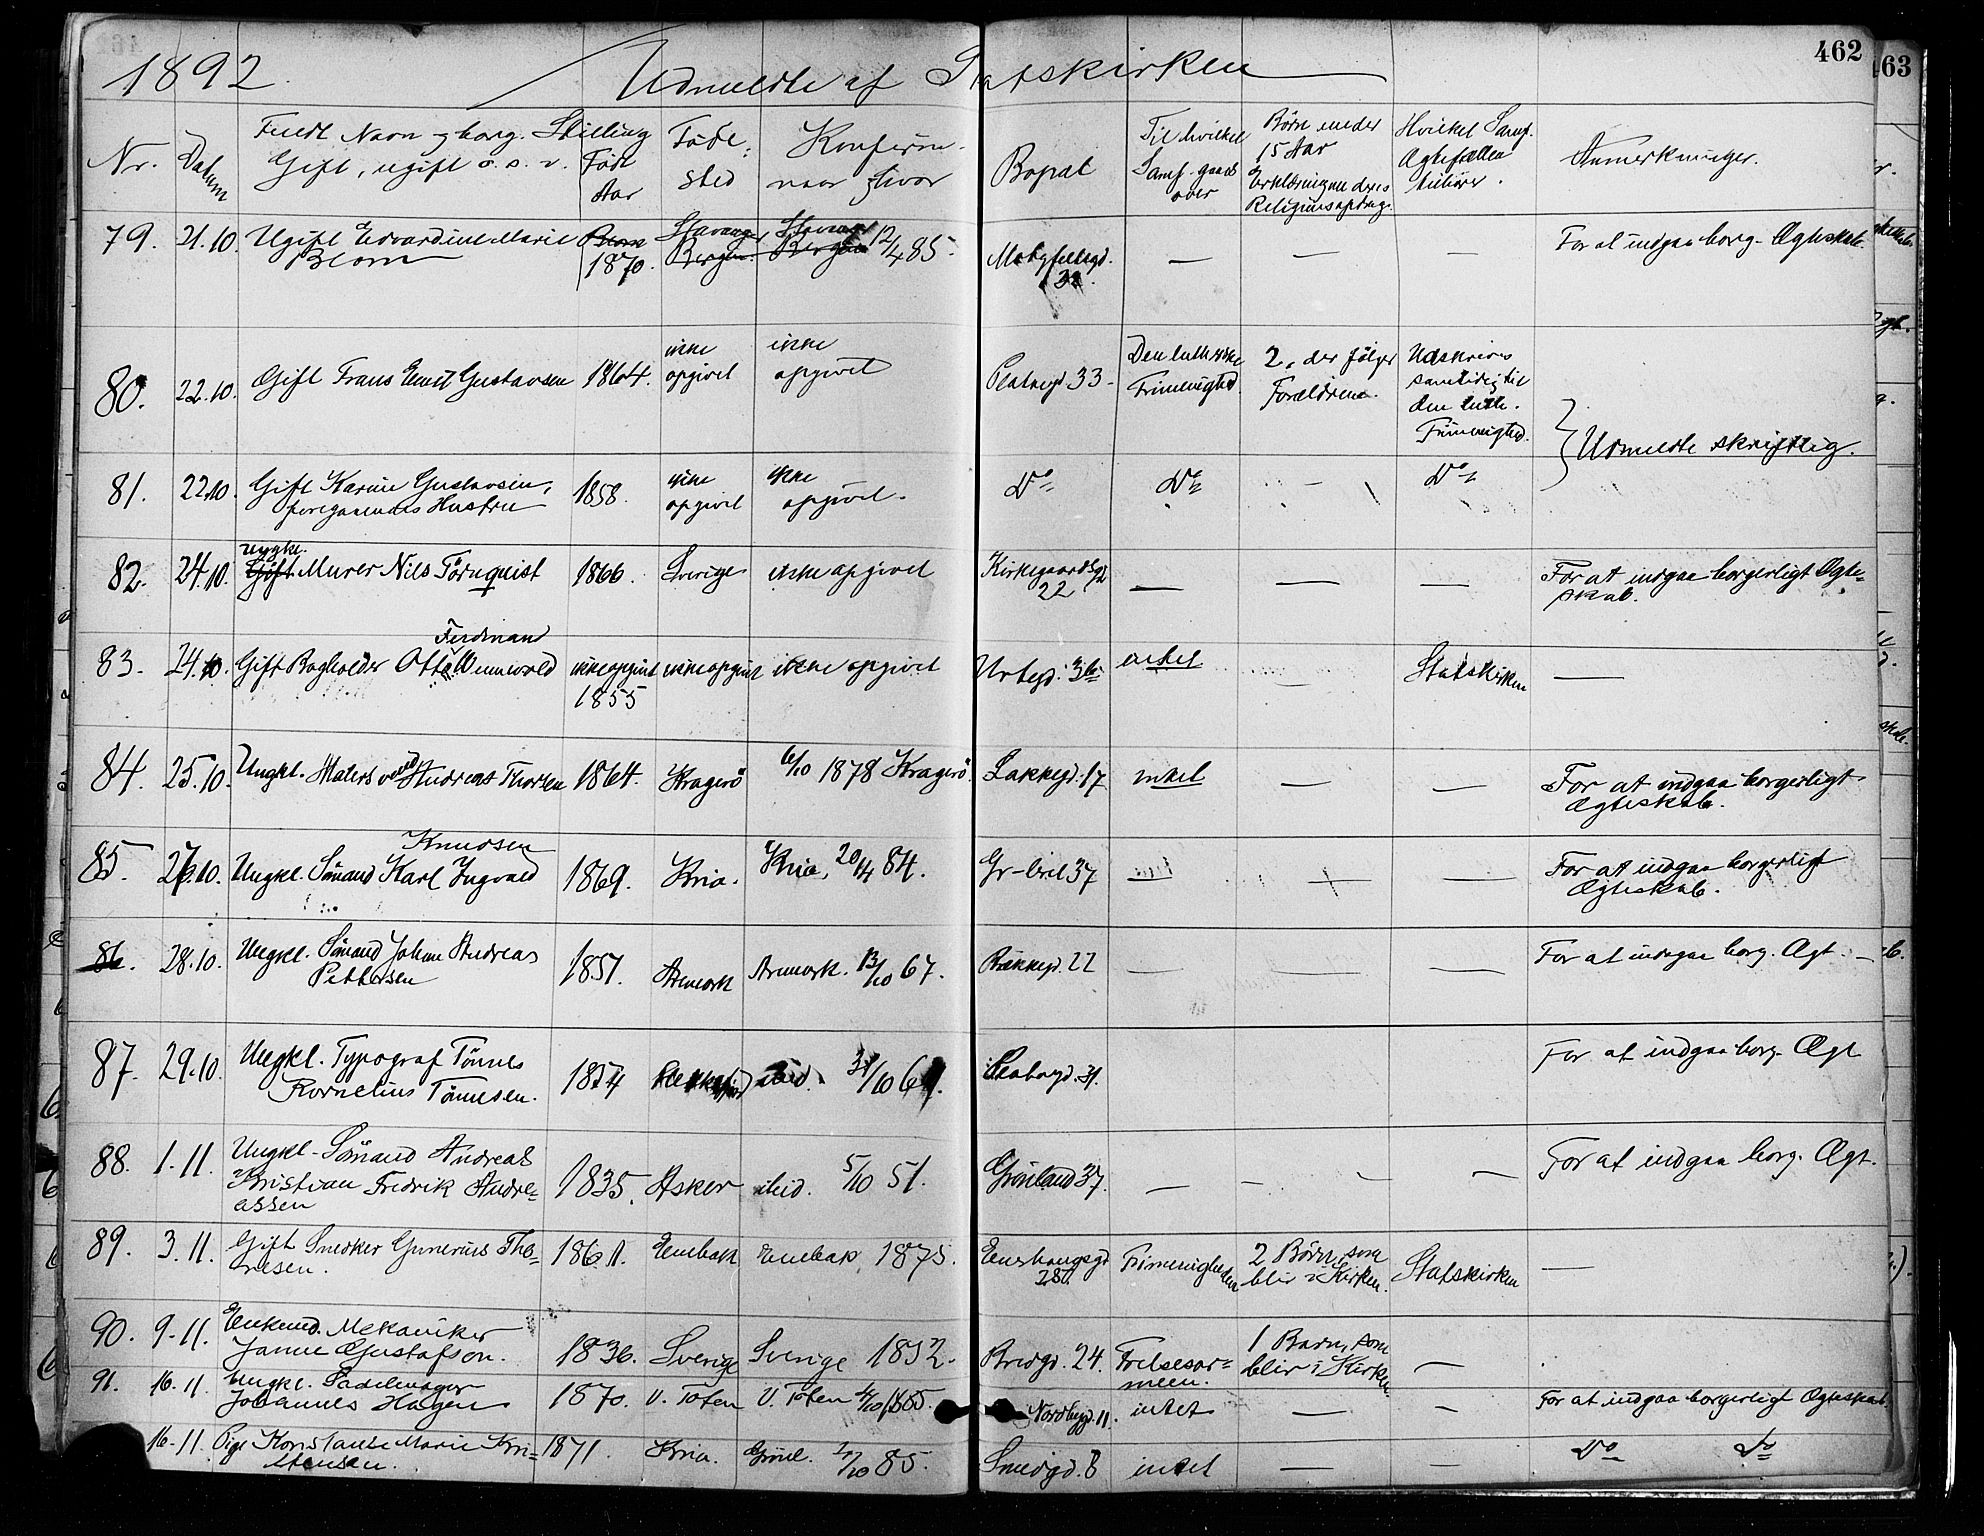 462
63
1892
Udmeldte af Statskirken
Nr.
Datum
Fuldt Navn og borg. Stilling
Gift, ugift o. s. v.
Født
Aar
Føde-
sted
Konfirm.
naar & hvor
Bopæl
Til hvilket
Samf. gaaet
over
Børn under
15 Aar
Erklæringen deres
Religionsopdrag.
Hvilket Samf.
Ægtefællen
tilhører.
Anmerkninger.
79. 21.10. Ugift Edvardine Marie Blom 1870. Stavanger Bergen Stavanger Bergen 12/4 85. — — — For at indgaa borg. Ægteskab
80. 22.10. Gift Frans Emil Gustavsen 1864. ikke opgivet ikke opgivet Platougd 33 Den lutherske Frimenighed 2, der følger Forældrene. Udskrives samtidig til den luth. Frimenighed.
Udmeldte skriftlig.
81. 22.10. Gift Karine Gustavsen, foregaaendes Hustru 1858. ikke opgivet ikke opgivet. Do Do — Do
82. 24.10. Ungkl. Gift Murer Nils Törnquist 1866. Sverige ikke opgivet Kirkegaardsgd 22 — — — For at indgaa borgerligt Ægteskab.
83. 24.10. Gift Bogholder Otto Ferdinand ikke opgivet 1855 ikke opgivet ikke opgivet Urtegd. intet — Statskirken —
84. 25.10. Ungkl. Andreas Thorsen 1864. Kragerö 6/10 1878 Kragerö. Lakkegd. 17 intet — — For at indgaa borgerligt Ægteskab.
85. 27.10. Ungkl. Sömand Karl Ingvald Knudsen 1869. Kria. Kria, 20/4 84. Gr-leret 37 — — — For at indgaa borgerligt Ægteskab.
86. 28.10. Ungkl. Sömand Johan Andreas Pettersen 1851. Aremark Aremark. 13/10 67. 22 — — — For at indgaa borg. Ægt. —
87. 29.10. Ungkl. Typograf Tönnes Kornelius Tönnesen. 1854 ibid. For at indgaa borg. Ægt
88. 1.11. Ungkl. Sömand Andreas Kristian Fredrik Andreassen 1835. Asker ibid. 5/10 51. Grönland 37. — — — For at indgaa borg. Ægt.
89. 3.11. Gift Snedker Gunerius Thoresen. Enebak Enebak, 1875. Frimenigheden 2 Børn, som blir i Kirken. Statskirken —
90. 9.11. Enkemd. Mekaniker Janne Gustafson. 1836. Sverige Sverige 1852. Bredgd. 24. Frelsesarmeen. 1 Barn, som blir i Kirken —
91. 16.11. Ungkl. Sadelmager Johannes Hagen 1870. V. Toten V. Toten Nordbygd. 11. intet — — For at indgaa borgerligt Ægteskab
16.11. Pige Konstanse Marie Kristensen. 1871. Kria. Grönl. 85. Smedgd. 8 intet — — Do Do